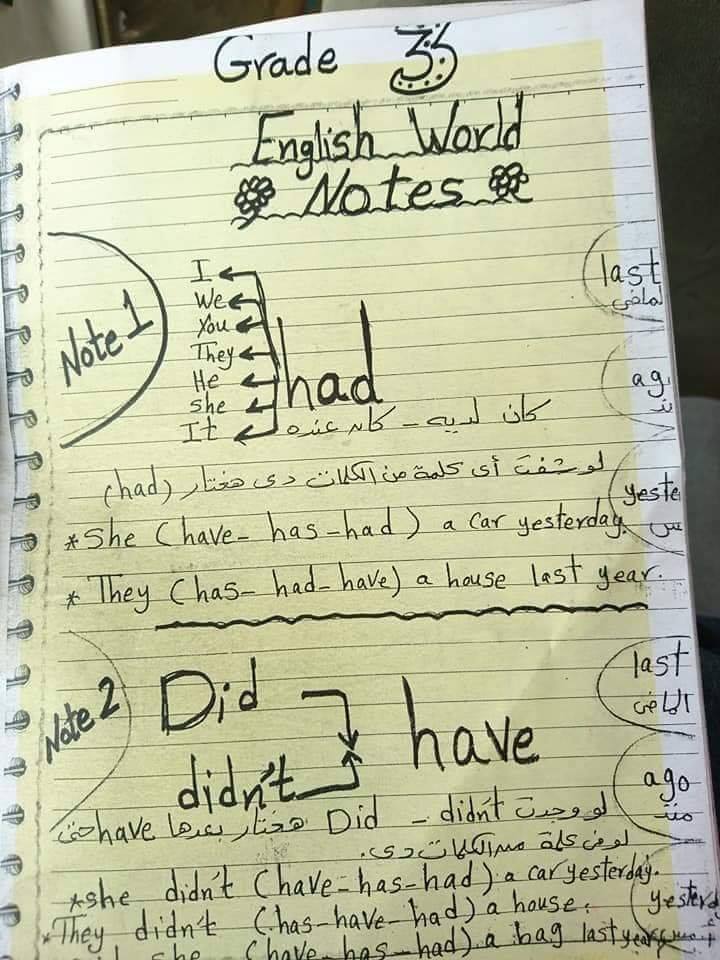 Grade 3
English World
Notes
Note 1
I
We
You
They
He
She
It
had
كان لديه - كان عنده
last
الماضى
ago
منذ
لو شفت أى كلمة من الكلمات دى هختار (had)
yeste
* She (have - has - had) a car yesterday.
* They (has - had - have) a house last year.
Note 2
Did
didn't
have
last
الماضى
ago
منذ
لو وجدت Did - didn't هختار بعدها have حتى
لو فى كلمة من الكلمات دى.
* she didn't (have - has - had) a car yesterday.
* They didn't (has - have - had) a house.
yesterd
she (have - has - had) a bag last year